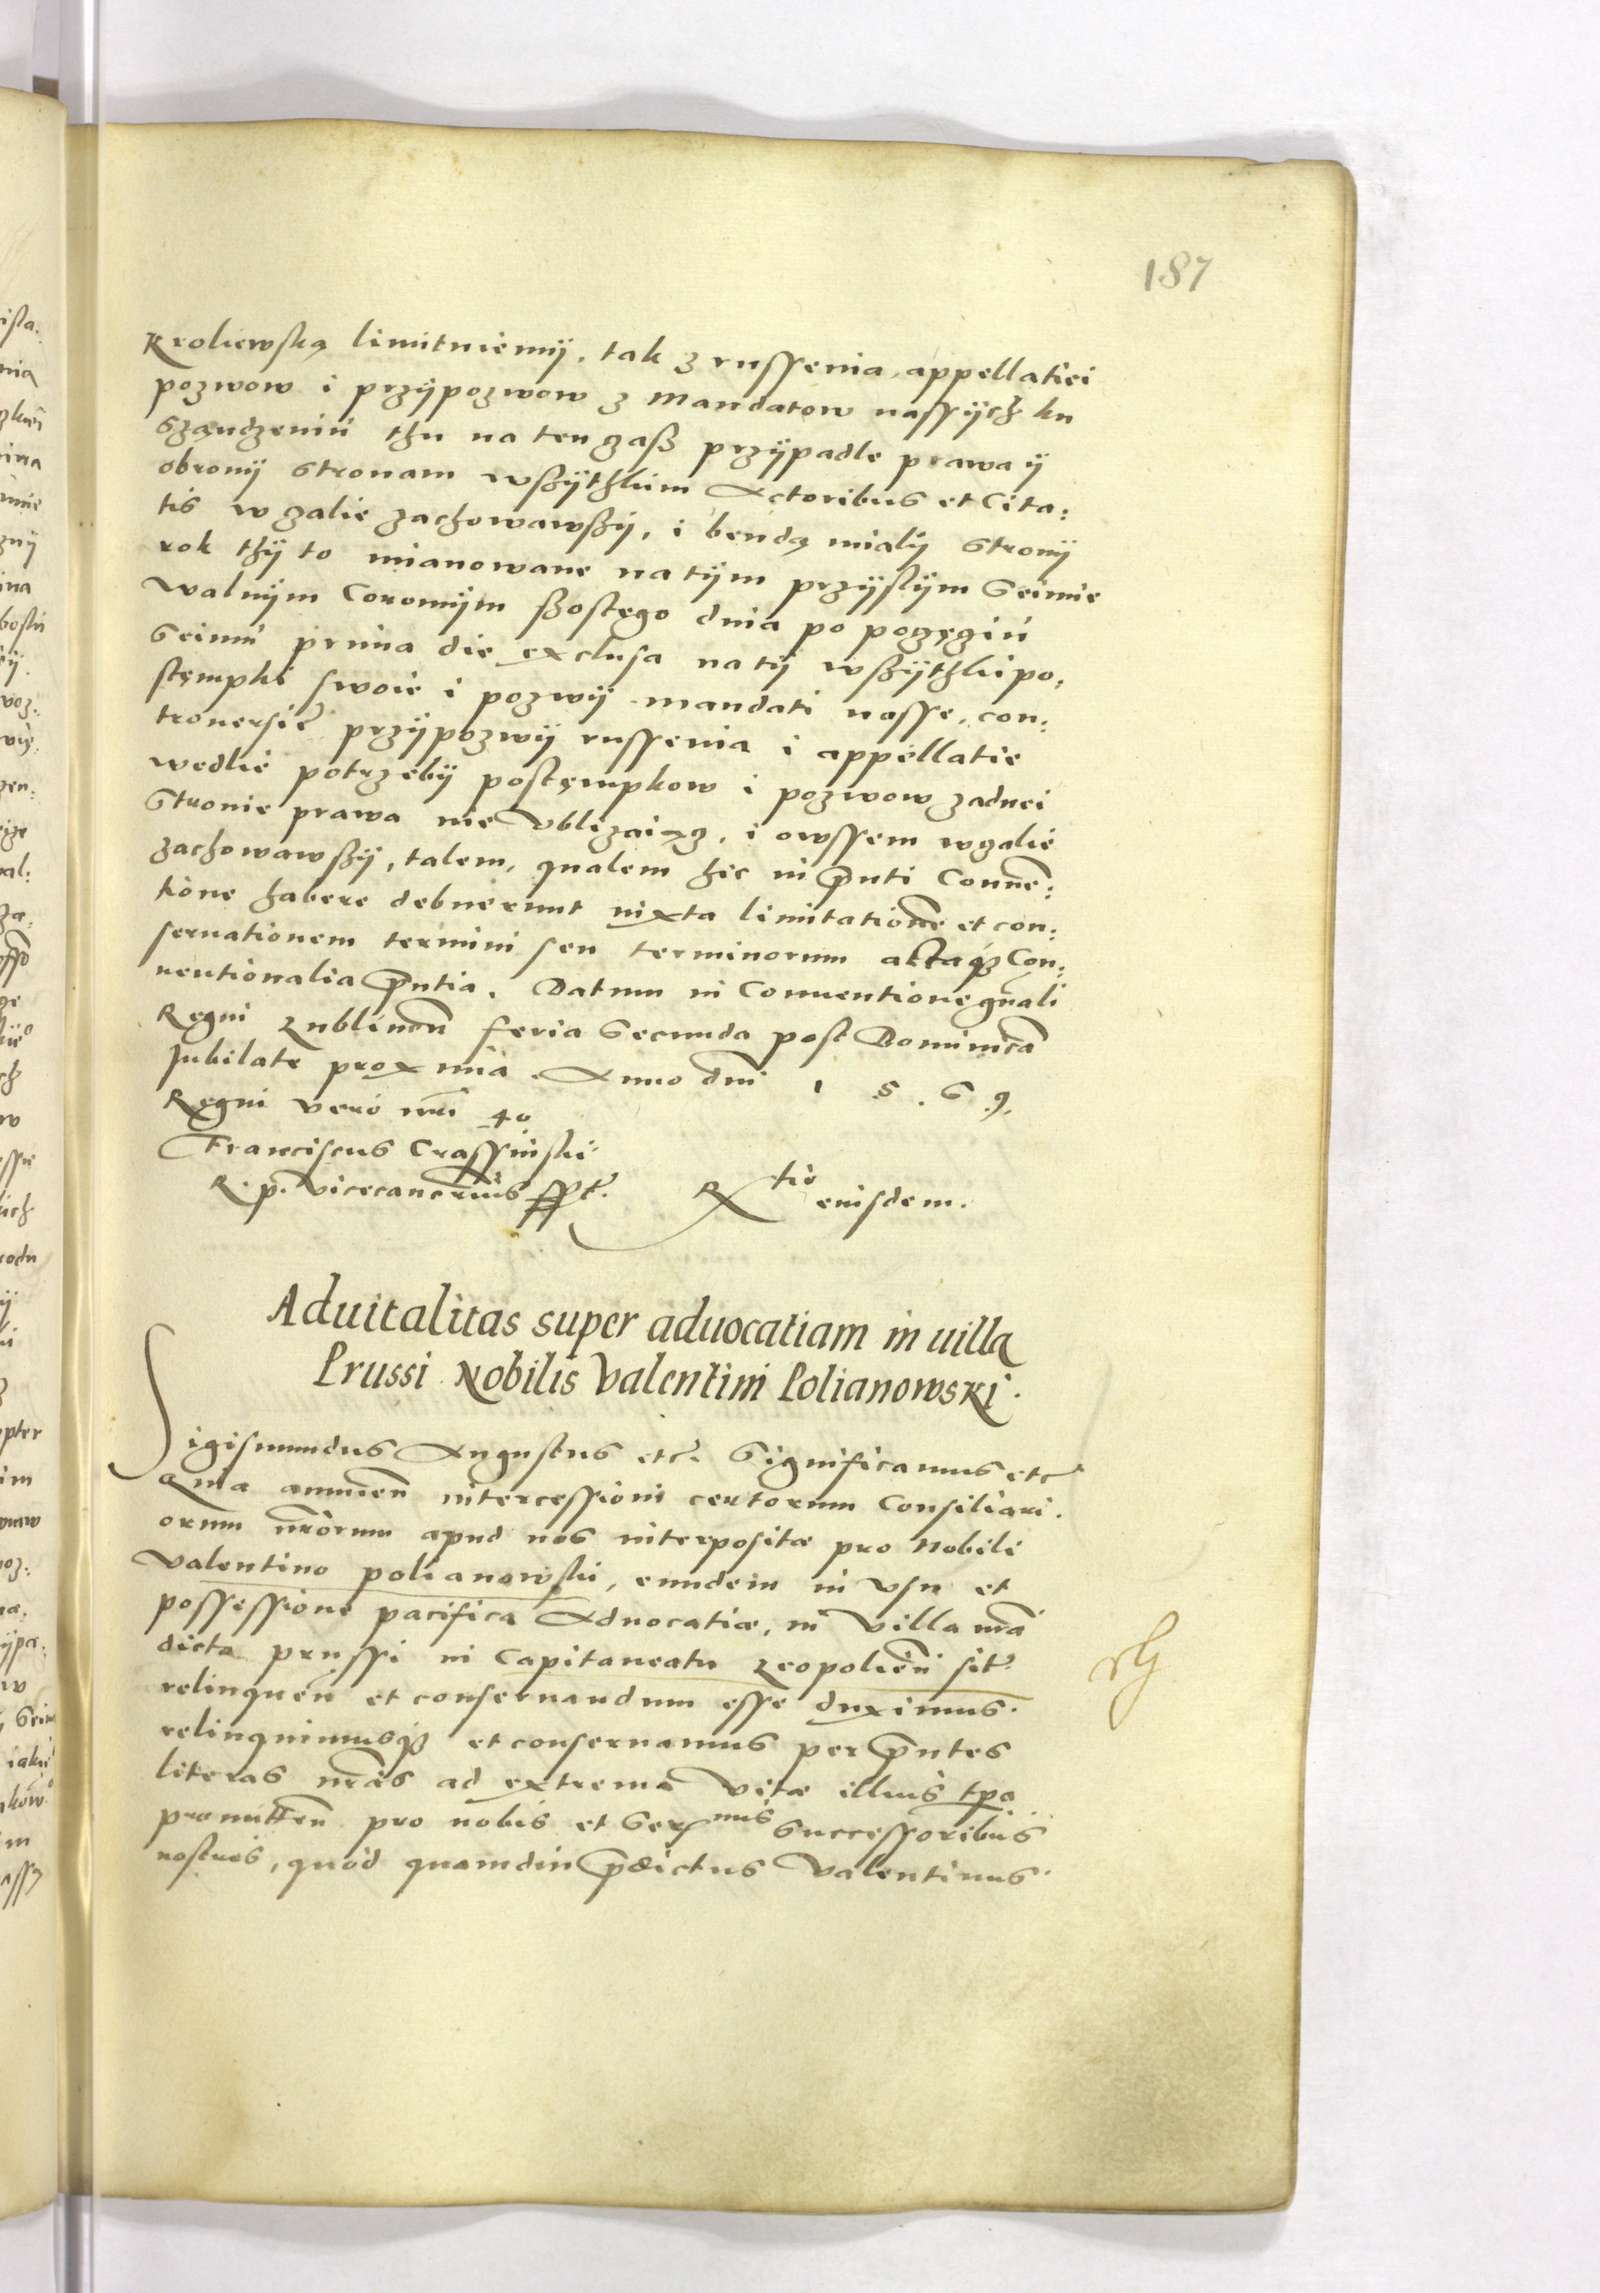 187
Kroliewską limituiemÿ, tak z russenia, appellatiei
pozwow i przÿpozwow z mandatow nassÿch ku
sządzeniu thu na ten czasz przÿpadłe prawa ÿ
obronÿ stronam wszÿthkim Actoribus et Cita:
tis w calie zachowawszÿ, i bendą mialÿ stronÿ
rok thÿ to mianowane na tÿm przÿslÿm Seimie
walnÿm Coronnÿm szostego dnia po poczęciu
Seimu prima die exclusa na tÿ wszÿthki po:
stempki swoie i pozwÿ mandati nasse, con:
trouersie przÿpozwÿ russenia i appellatie
wedlie potrzebÿ postempkow i pozwow zadnei
stronie prawa nie ubliżaiąc, i owssem w calie
zachowawszÿ, talem, qualem hic in pñti Conuẽ:
tione habere debuerunt iuxta limitationẽ et con:
seruationem termini seu terminorum actaq3 Con:
uentionalia pñtia. Datum in Conuentione gñali
Regni Lublineñ feria secunda post Dominicã
Jubilate proxima. Anno dñi 1 5 . 6 9.
Regni vero nrĩ 40
Franciscus Crassinski
R. p. vicecancrius sspt. Rtio eiusdem.
Aduitalitas super aduocatiam in uilla
Prussi Nobilis Valentini Polianowski.
Sigismundus Augustus etc. Significamus etc
Quia annueñ intercessioni certorum Consiliari.
orum nrõrum apud nos interpositæ pro Nobili
Valentino polianowski, eundem in vsu et
possessione pacifica Aduocatiæ, in Villa nrã
dicta prussi in Capitaneatu Leopolieñ sit.
relinqueñ et conseruandum esse duximus.
relinquimusq3 et conseruamus per pñtes
literas nrãs ad extrema vitæ illius tpa
promitteñ pro nobis et Sermis Successoribus
nostris, quod quamdiu pdictus Valentinus.